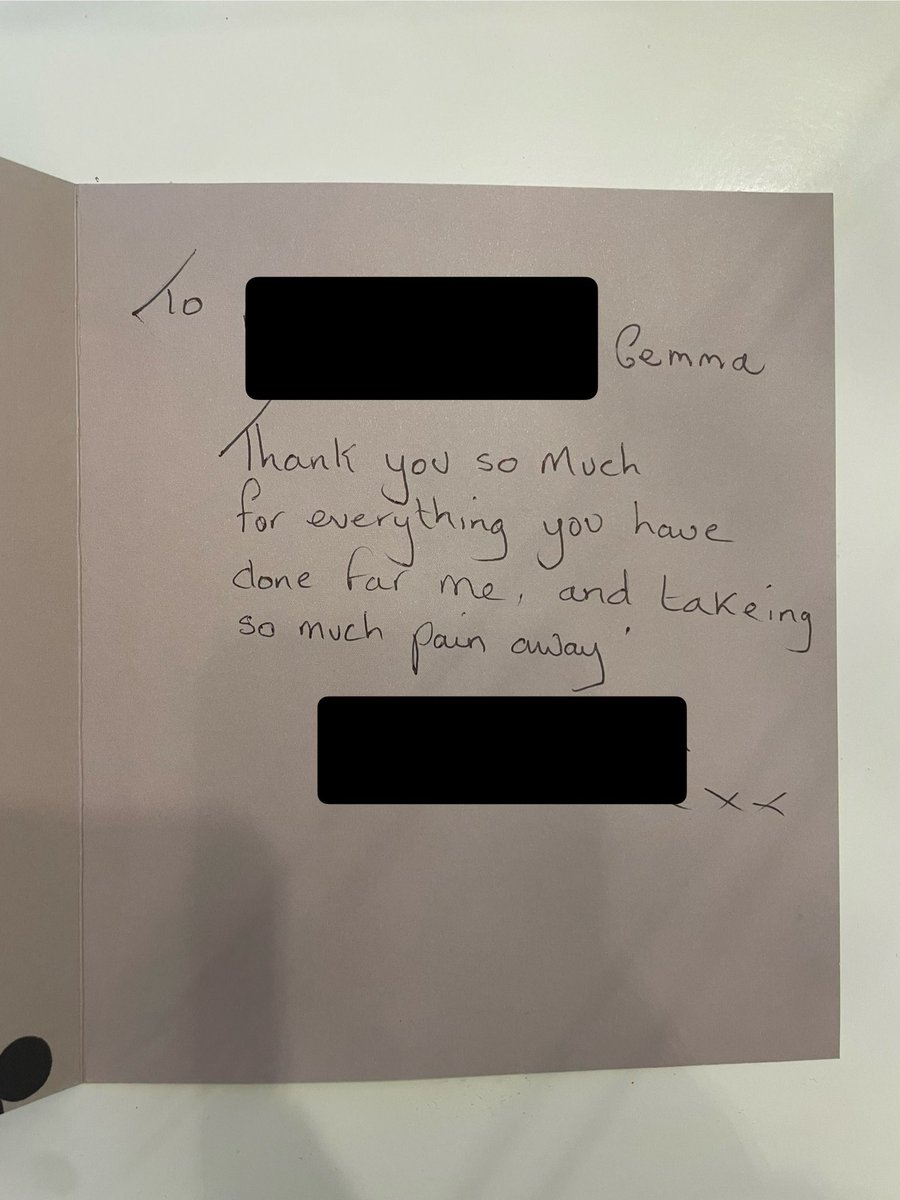 To
Gemma
Thank you so Much
for everything you have
done for me, and takeing
so much pain away'
xx